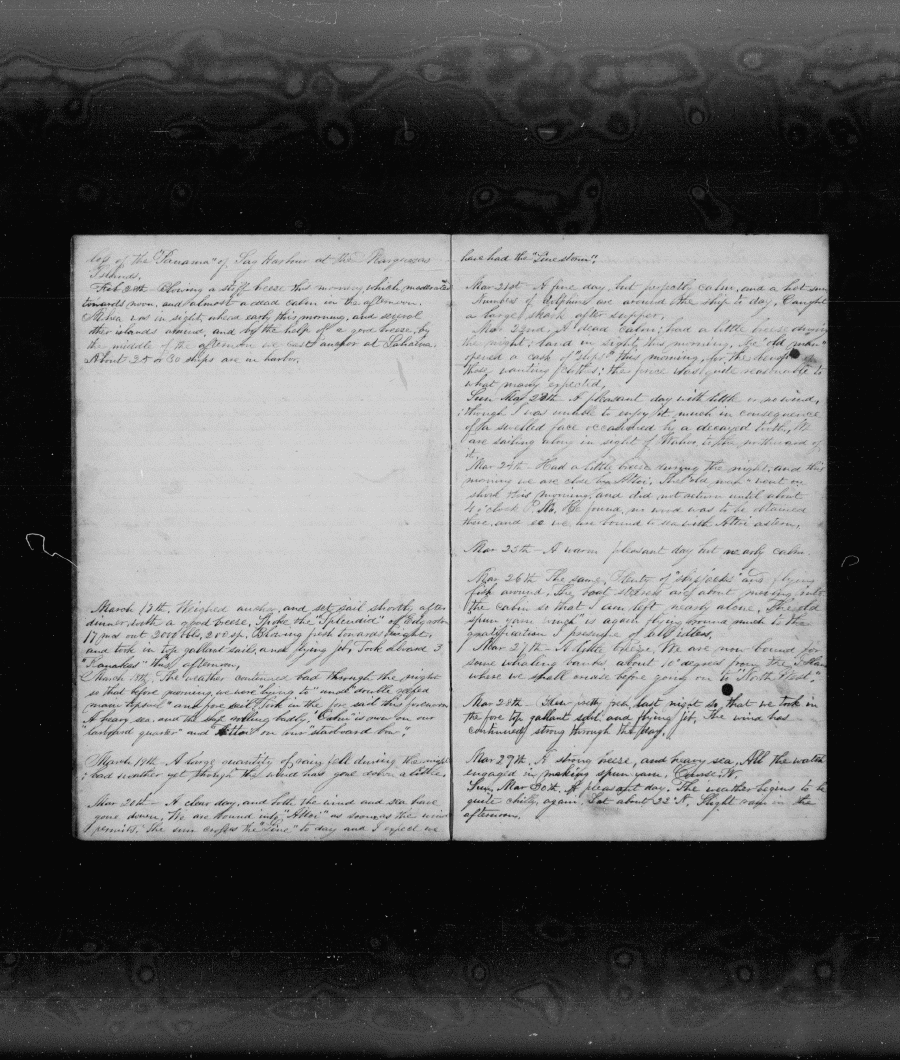 loss of the "Panama" of Sag Harbor at the Marquesas
Islands.
Feb 28th Blowing a stiff breeze this morning which moderates
towards noon, and almost a dead calm in the afternoon.
was in sight, when early this morning, and several
other islands around, and by the help of a good breeze, by
the middle of the afternoon we cast anchor at Lahaina.
About 25 or 30 ships are in harbor.
March 17th. Weighed anchor, and set sail shortly after
dinner with a good breeze. Spoke the "Splendid" of Edgarton
17 mos out 2000 bbls, 200 sp. Blowing fresh towards night,
and took in top gallant sails, and flying jib, Took aboard 3
"Kanakas" this afternoon.
March 18th. The weather continued bad through the night
so that before morning, we were lying to "under double reefed
main topsail" and fore sail. Took in the fore sail this forenoon
A heavy sea, and the ship rolling badly. "Oahu" is over on our
"larboard quarter" and "Attoi" on our "starboard bow".
March 19th A large quantity of rain fell during the night
; bad weather yet though the wind has gone down a little.
Mar 20th - A clear day, and both the wind and sea have
gone down. We are bound into "Attoi" as soon as the wind
permits. The sun crosses the "Line" to day and I expect we
have had the "Line storm".
Mar 21st A fine day, but perfectly calm, and a hot sun
Numbers of dolphins are around the ship to day. Caught
a large shark after supper.
Mar 22nd. A dead calm; had a little breeze during
the night; land in sight this morning. The "old man"
opened a cask of "slops" this morning, for the benefit of
those wanting clothes; the price was quite reasonable to
what many expected.
Sun Mar 23th A pleasant day with little or no wind,
though I was unable to enjoy it much in consequence
of a swelled face occasioned by a decayed tooth. We
are sailing along in sight of Wahoo, to the northward of
it.
Mar 24th - Had a little breeze during the night, and this
morning we are close by Attoi. The "old man" went on
shore this morning, and did not return until about
4 o'clock P.M. He found no wood was to be obtained
there, and so we are bound to sea with Attoi astern.
Mar 25th - A warm pleasant day but nearly calm
Mar 26th The same. Plenty of "skipjacks" and flying
fish around. The boat steerers are about moving into
the cabin so that I am left nearly alone. The old
spun yarn winch is again flying around much to the
gratification I presume of all idlers.
Mar 27th A little breeze. We are now bound for
some whaling banks, about 10 degrees from the Islands
where we shall cruise before going on to "North West".
Mar 28th - Blew pretty fresh last night so that we took in
the fore top gallant sail, and flying jib. The wind has
continued strong through the day.
Mar 29th. A strong breeze, and heavy sea. All the watch
engaged in making spun yarn. Course N.
Sun. Mar 30th. A pleasant day. The weather begins to be
quite chilly, again. Lat about 32° N. Slight rain in the
afternoon.